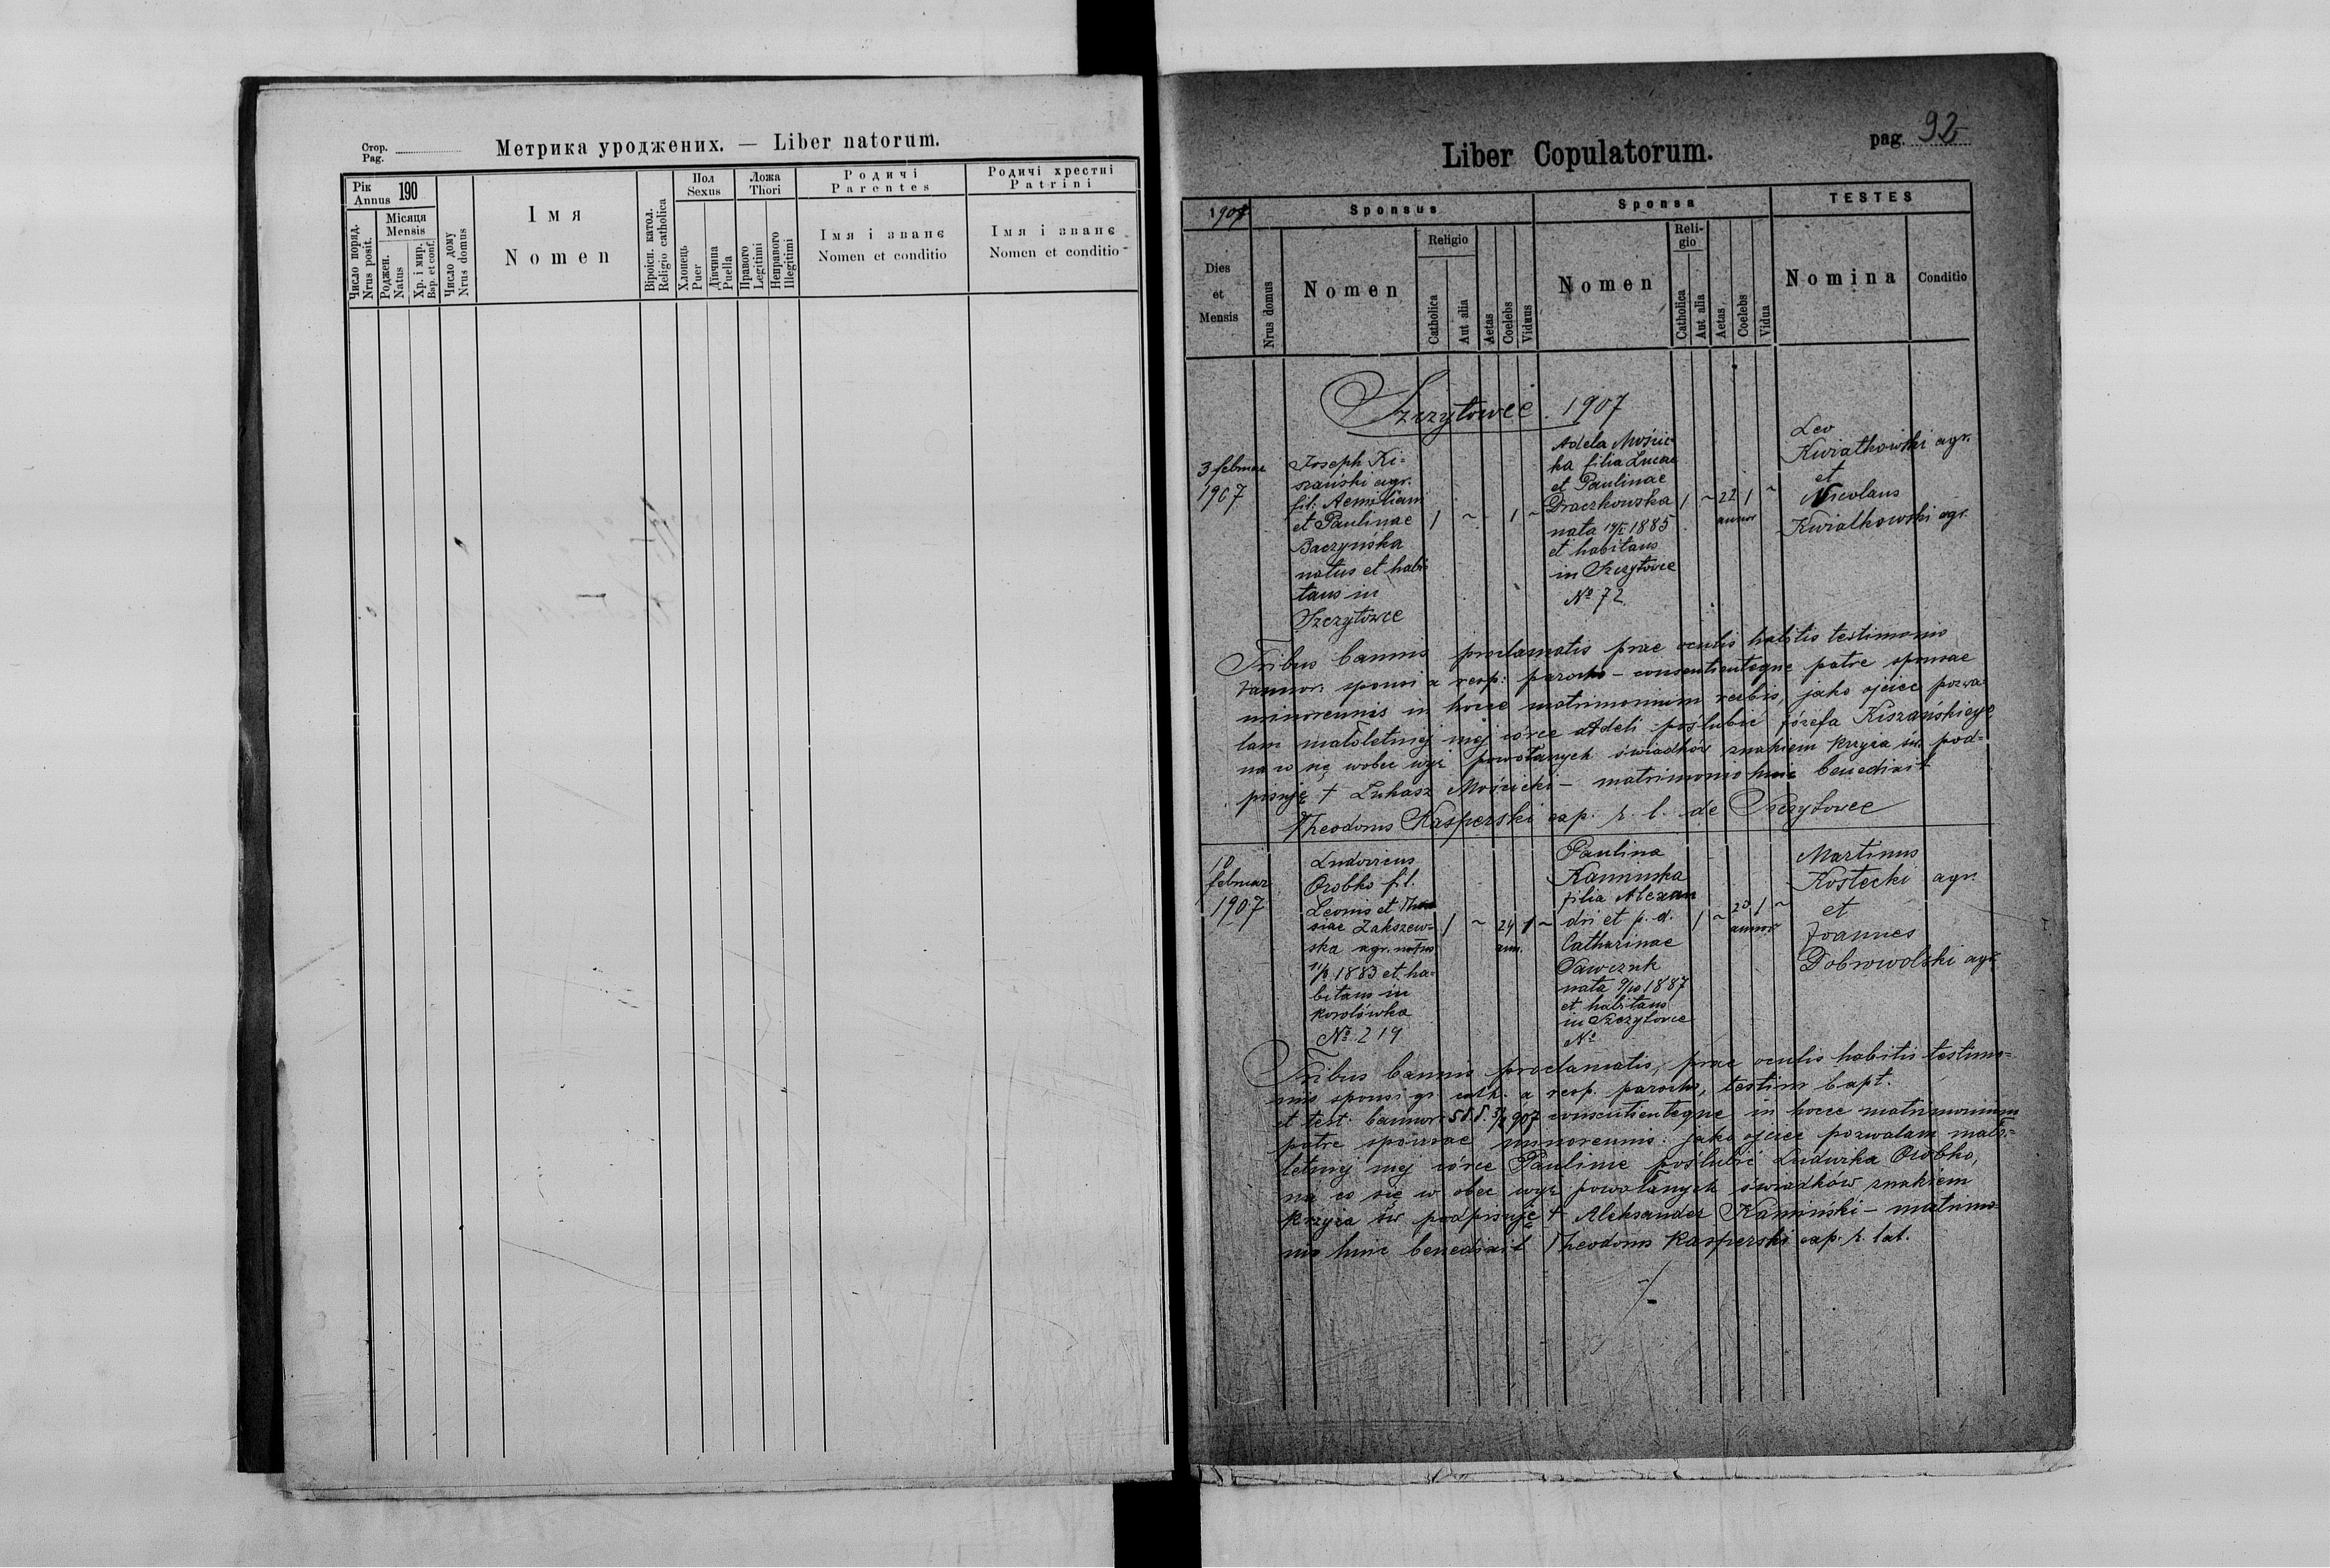 Стор.
Pag.
Метрика уроджених. — Liber natorum.
Рік
Annus 190
Число поряд.
Nrus posit.
Місяця
Mensis
Роджен.
Natus
Хр. і мир.
Bap. et conf.
Число дому
Nrus domus
Імя
Nomen
Віроісп. катол.
Religio catholica
Пол
Sexus
Хлопець
Puer
Дївчина
Puella
Ложа
Thori
Правого
Legitimi
Неправого
Illegitimi
Родичі
Parentes
Імя і званє
Nomen et conditio
Родичі хрестні
Patrini
Імя і званє
Nomen et conditio
pag. 92
Liber Copulatorum.
1907
Sponsus
Sponsa
TESTES
Dies
et
Mensis
Nrus domus
Nomen
Religio
Catholica
Aut alia
Aetas
Coelebs
Viduus
Nomen
Reli-
gio
Catholica
Aut alia
Aetas
Coelebs
Vidua
Nomina
Conditio
Szczytowce. 1907
3 februar
1907
Joseph Ki-
szański agr.
fil. Aemiliani
et Paulinae
Baczyńska
natus et habi-
tans in
Szczytowce
1 ~ 1 ~
Adela Mościc-
ka filia Lucae
et Paulinae
Draczkowska
nata 1885
et habitans
in Szczytowce
No 72
1 ~ 22 1 ~
annor
Leo
Kwiatkowski agr.
et
Nicolaus
Kwiatkowski agr.
Tribus bannis proclamatis prae oculis habitis testimonio
bannor. sponsi a resp: parocho – consentienteque patre sponsae
minorennis in hocce matrimonium verbis, jako ojciec pozwa-
lam małoletniej mej córce Adeli poślubić Józefa Kiszańskiego
na co się wobec wyż powołanych świadków znakiem krzyża św. pod=
pisuję + Łukasz Mościcki – matrimonio huic benedixit
Theodorus Kasperski cap. r. l. de Szczytowce
10
februar
1907
Ludovicus
Orobko fil.
Leonis et
Zakszew-
ska agr. natus
1883 et ha-
bitans in
Korolówka
No 219
1 ~ 24 1 ~
ann.
Paulina
Kamińska
filia Alexan
dri et p. d.
Catharinae
Sawczuk
nata 9/10 1887
et habitans
in Szczytowce
No
1 ~ 20 1 ~
annor
Martinus
Kostecki agr.
et
Joannes
Dobrowolski agr.
Tribus bannis proclamatis, prae oculis habitis testimo=
niis sponsi gr. cath. a resp. parocho, testim bapt.
et test. bannor 907 consentienteque in hocce matrimonium
patre sponsae minorennis: jako ojciec pozwalam mało=
letniej mej córce Paulinie poślubić Ludwika Orobko,
na co się w obec wyż powołanych świadków znakiem
krzyża św podpisuję + Aleksander Kamiński – matrimo
nio huic benedixit Theodorus Kasperski cap. r. lat.